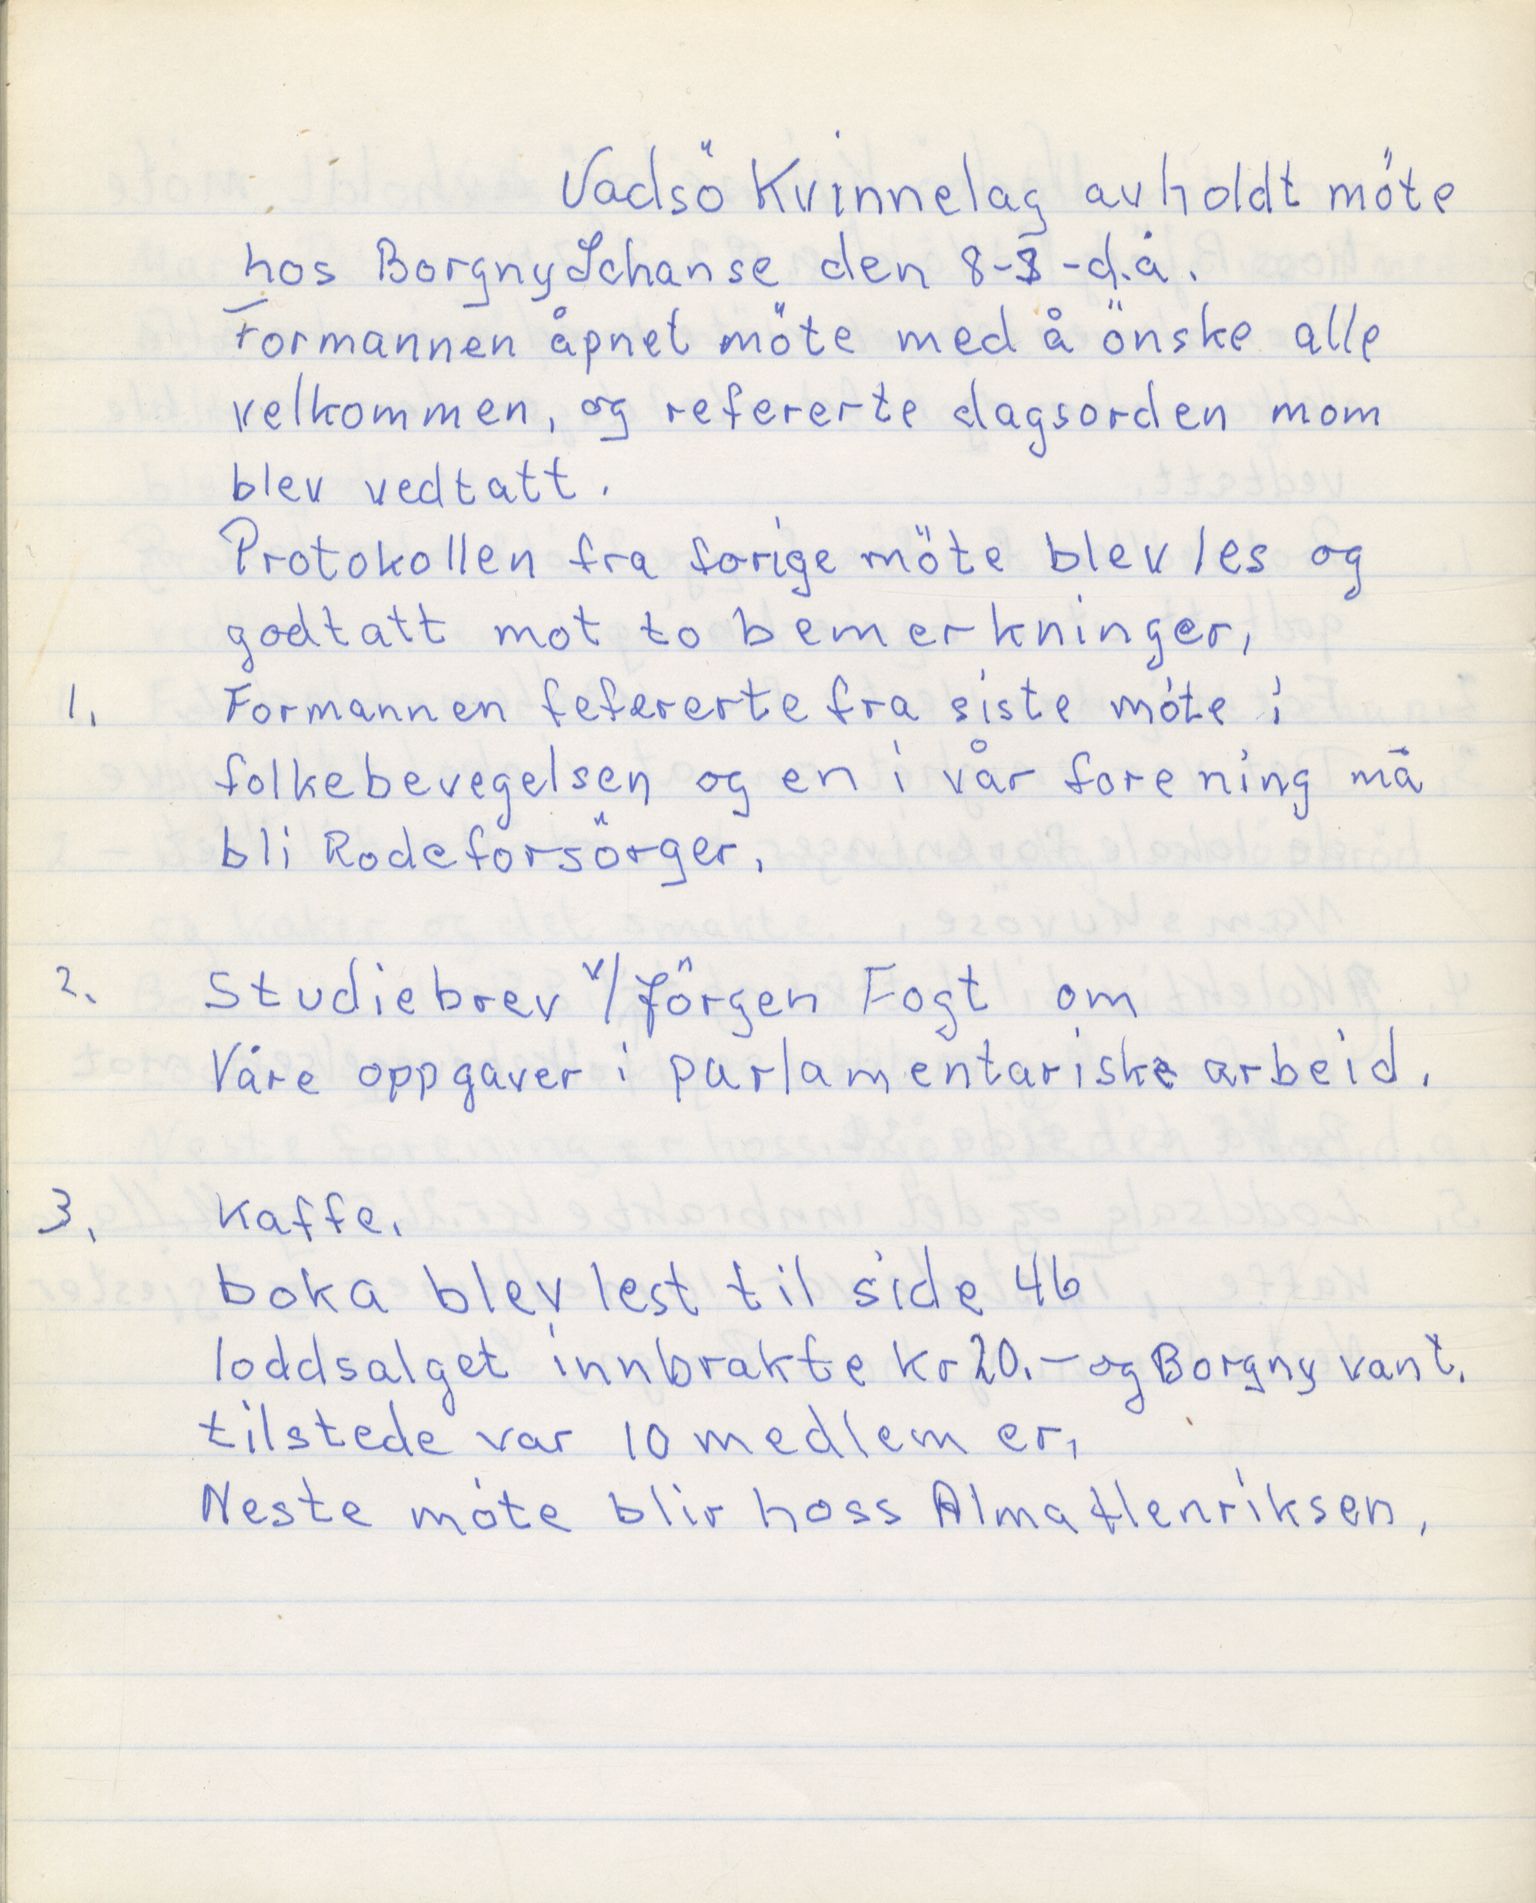 Vadsö Kvinnelag avholdt möte
hos Borgny Schanse den 8-3-d.å.
Formannen åpnet möte med å önske alle
velkommen, og refererte dagsorden mom
blev vedtatt.
Protokollen fra forige möte blev les og
godtatt mot to bemerkninger,
1. Formannen fefererte fra siste móte i
folkebevegelsen og en i vår forening må
bli Rodeforsörger.
2. Studiebrev v/Jörgen Fogt om
Våre oppgaver i parlamentariske arbeid.
3. Kaffe.
boka blev lest til side 46
loddsalget innbrakte kr 20.- og Borgny vant.
tilstede var 10 medlemer,
Neste móte blir hoss Alma Henriksen,